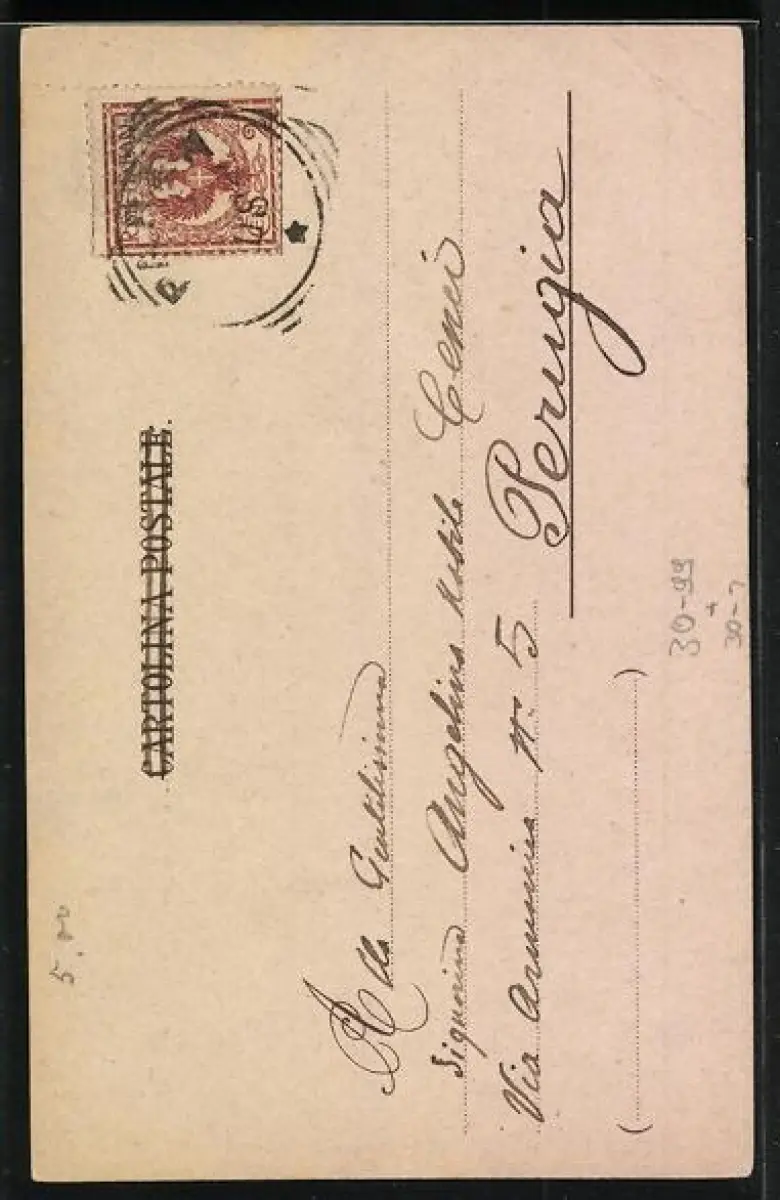 CARTOLINA POSTALE.
Alla Gentilissima
Signorina Angelina Nobile Cenci
Via Armonica N. 5
Perugia
5.00
30-99
+
30-7